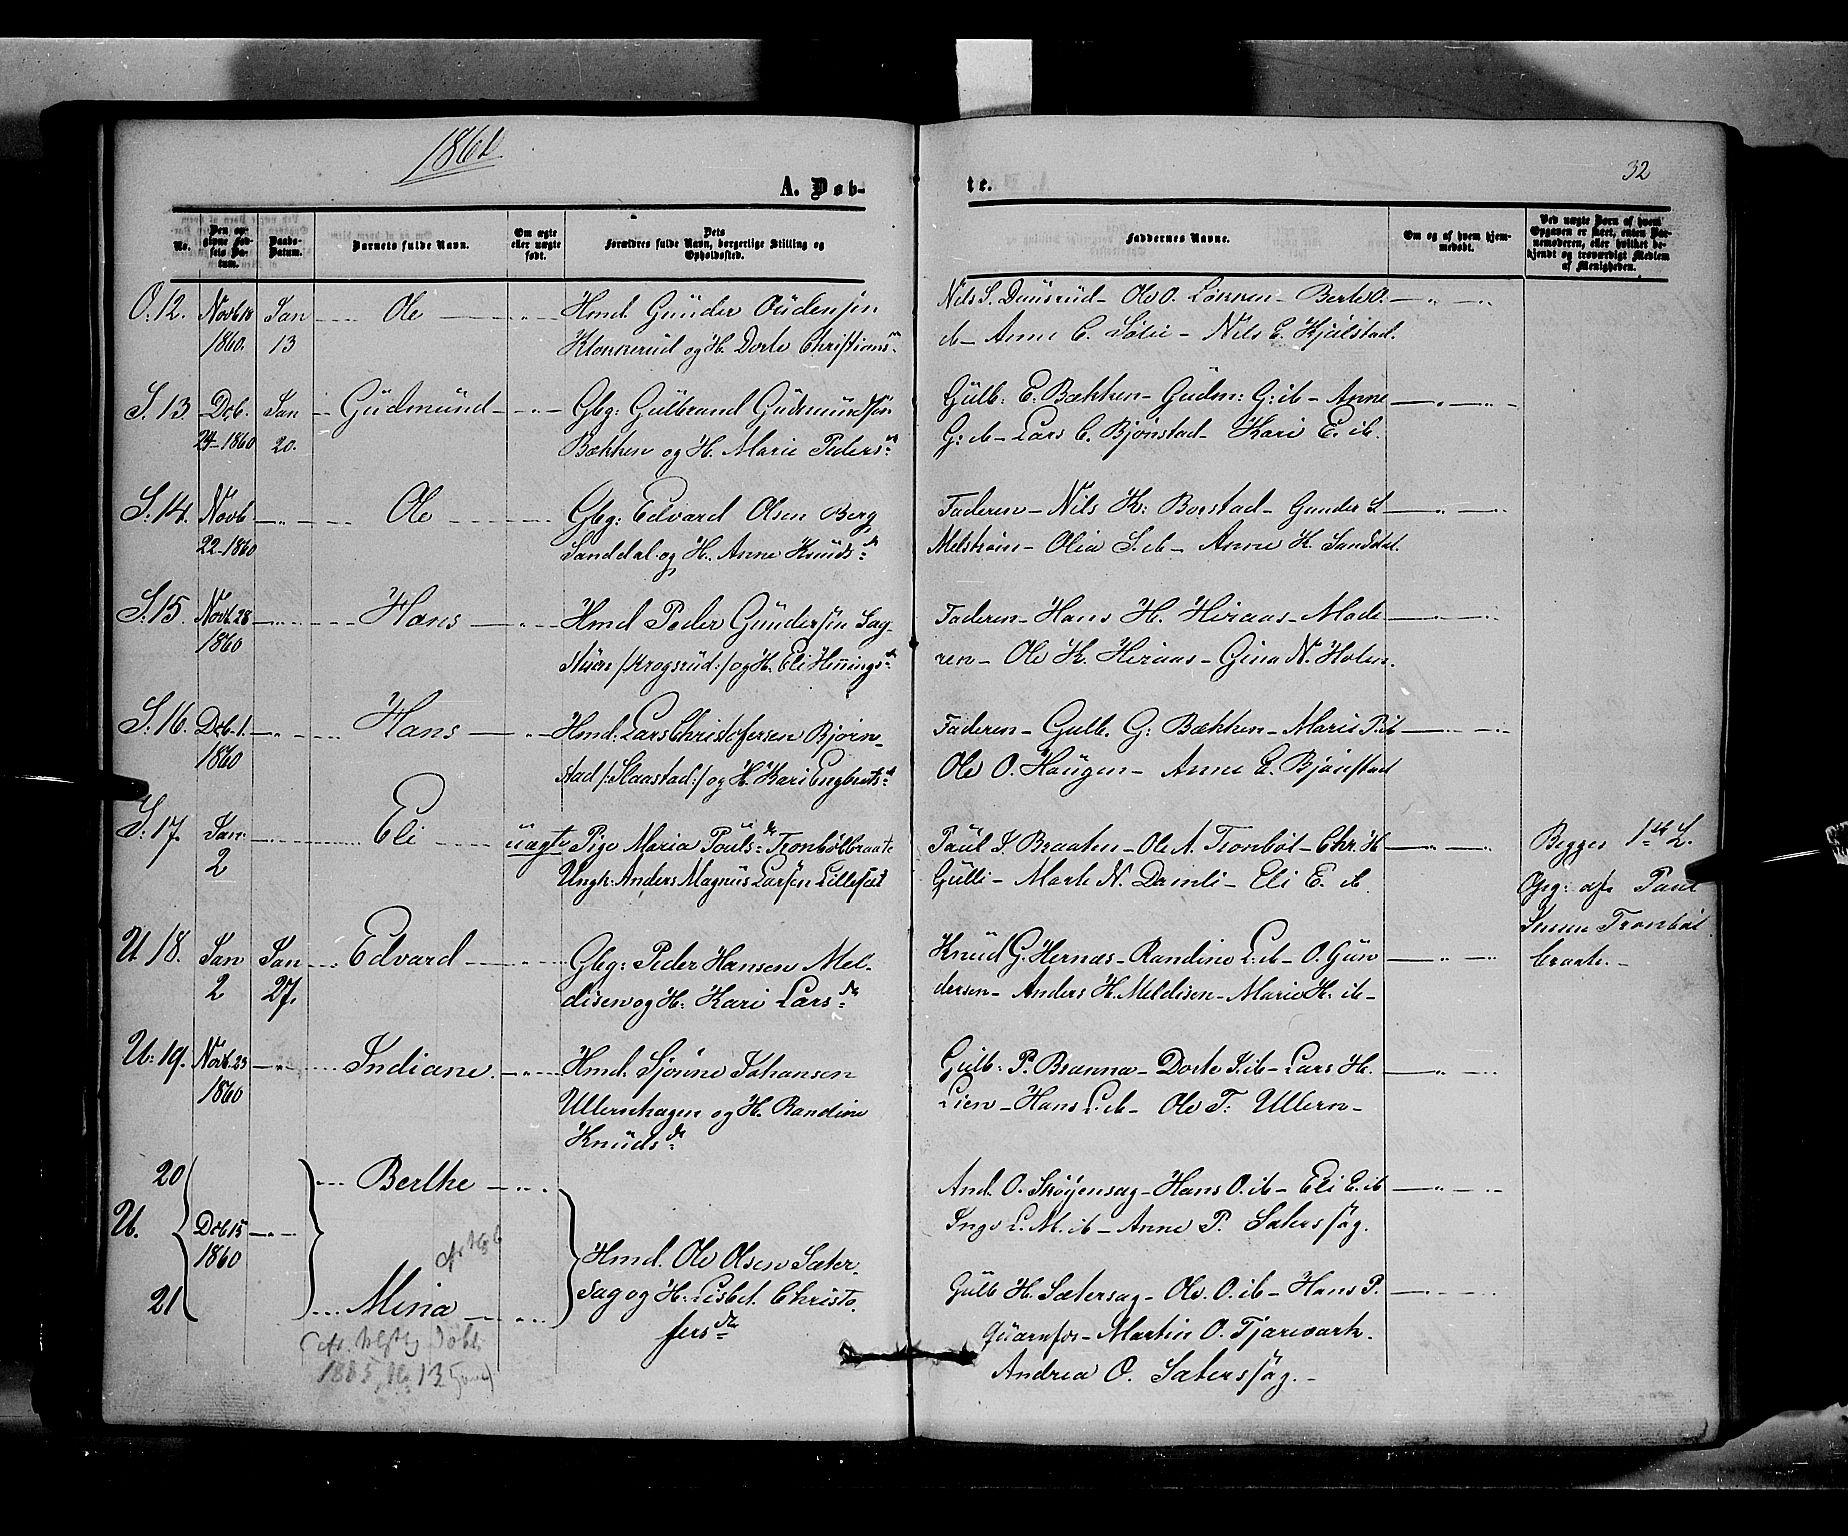 1861
A. Døb-
te.
32
No.
Den opgivne Fødsels Datum.
Daabs-Datum.
Barnets fulde Navn.
Om ægte eller uægte født.
Dets Forældres fulde Navn, borgerlige Stilling og Opholdssted.
Faddernes Navne.
Om og af hvem hjemmedøbt.
Ved uægte Børn af hvem Opgaven er skeet, enten Barnemoderen, eller hvilket bekjendt og troværdigt Medlem af Menigheden.
O. 12. Novb 18 1860. Jan 13 Ole
Hmd. Gunder Oudensen
Klonkerud og H. Dorte Christians
Nils S. Daüsrüd - Ole O. Lønnen - Berte O.
ib - Anne C. Løbie - Nils E. Kjølstad.
S. 13 Dcb. 24-1860 Jan 20. Güdmünd
Gbg: Gülbrand Güdmündsen
Bækken og H. Marie Peders
Gülb: E. Bækken - Güdm: G: ib - Anne
G: ib - Lars C. Bjønstad - Kari E. ib.
S: 14. Novb 22-1860 Ole
Gbg: Edvard Olsen Berg
Sanddal og H. Anne Knüdsdr
Faderen - Nils K: Borstad - Gunder S
Melstrøm - Olia S. ib - Anne K. Sanddal.
S. 15. Novb. 28 1860 Hans
Hmd Peder Gündersen Sag-
stüen /Krogsrüd:/ og H. Eli Hennings
Faderen - Hans H. Heiaas - Mode
ren - Ole K. Heiaas - Gina N. Holen.
S. 16. Dcb. 1. 1860 Hans
Hmd. Lars Christofersen Bjørn-
stad /:Slaastad:/ og H. Kari Engbretsdr
Faderen - Gulb. G: Bækken - Marie P. ib
Ole O. Haügen - Anne E. Bjønstad
S: 17. Jan: 2 Eli uægte
Pige Maria Poulsdr Tronbølbraate
Ungk: Anders Magnüs Larsen Lilleset
Paül J. Braaten - Ole A. Tronbøl - Chr. H
Gülli - Marte N. Damli - Eli E. ib.
Begges 1ste L.
Opg: af Paul
Jensen Tronbøl
braate. -
U. 18. Jan 2 Jan 27. Edvard
Gbg: Peder Hansen Mel-
disen og H: Kari Larsdr
Knüd G. Hernæs - Randine L: ib - O. Gün
dersen - Anders H. Meldisen - Marie H. ib -
U: 19. Novb. 23 1860 Indiane.
Hmd. Sjønne Johansen
Ullernhagen og H. Randine
Knüdsdr
Gülb: P. Brænna - Dorte J. ib - Lars H.
Lien - Hans L. ib - Ole T: Ullern -
20 Berthe
U. Dcb 15 1860
21 Mina
Hmd. Ole Olsen Sæter-
sag og H: Lisbet Christo
fersdr
And. O. Skøyensag - Hans O. ib - Eli E. ib
Inge L. M. ib - Anne P. Sætersag.
Gülb H. Sætersag - Ole. O. ib - Hans P.
Qüarnfos - Martin O. Tjærevark.
Andrea O. Sætersag. -
1885